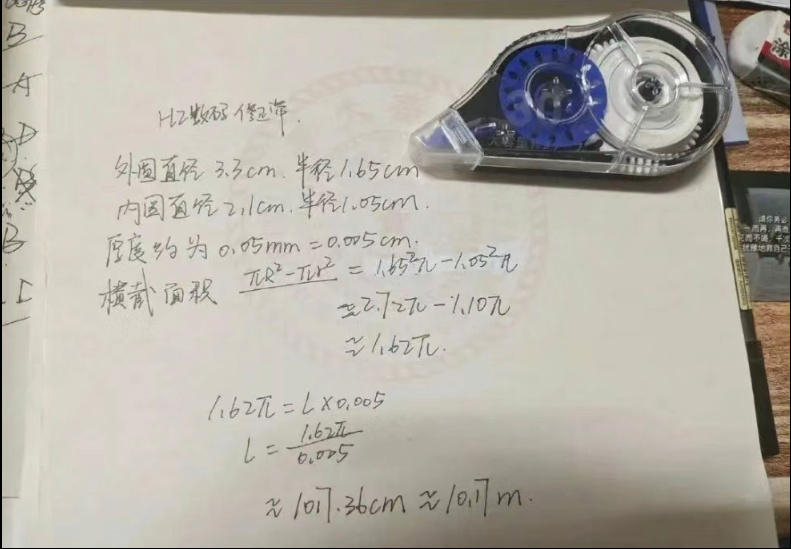 B
A
D
B
HZ数码修正带.
外圆直径3.3cm.半径1.65cm
内圆直径2.1cm.半径1.05cm.
厚度约为0.05mm=0.005cm.
横截面积 πR²-πr² = 1.65²π-1.05²π
≈2.72π-1.10π
≈1.62π.
1.62π=L×0.005
L=1.62π/0.005
≈1017.36cm≈10.17m.
涂